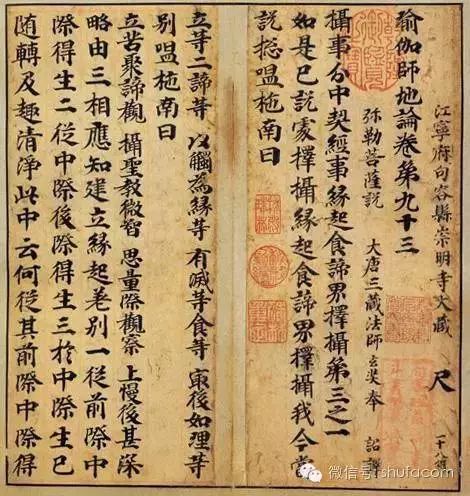 江寧府句容縣崇明寺大藏 尺 一十八紙
瑜伽師地論卷苐九十三
弥勒菩薩說 大唐三藏法師玄奘奉 詔譯
攝事分中契經事緣起食諦界擇攝苐三之一
如是已說處擇攝緣起食諦界擇攝我今當
說揔嗢柂南曰
立等二諦等 以觸為緣等 有滅等食等 冣後如理等
別嗢柂南曰
立苦聚諦觀 攝聖教微智 思量際觀察 上慢後甚深
略由三相應知建立緣起差別一從前際中
際得生二從中際後際得生三於中際生已
随轉及趣清淨此中云何從其前際中際得
微信号: shufacom